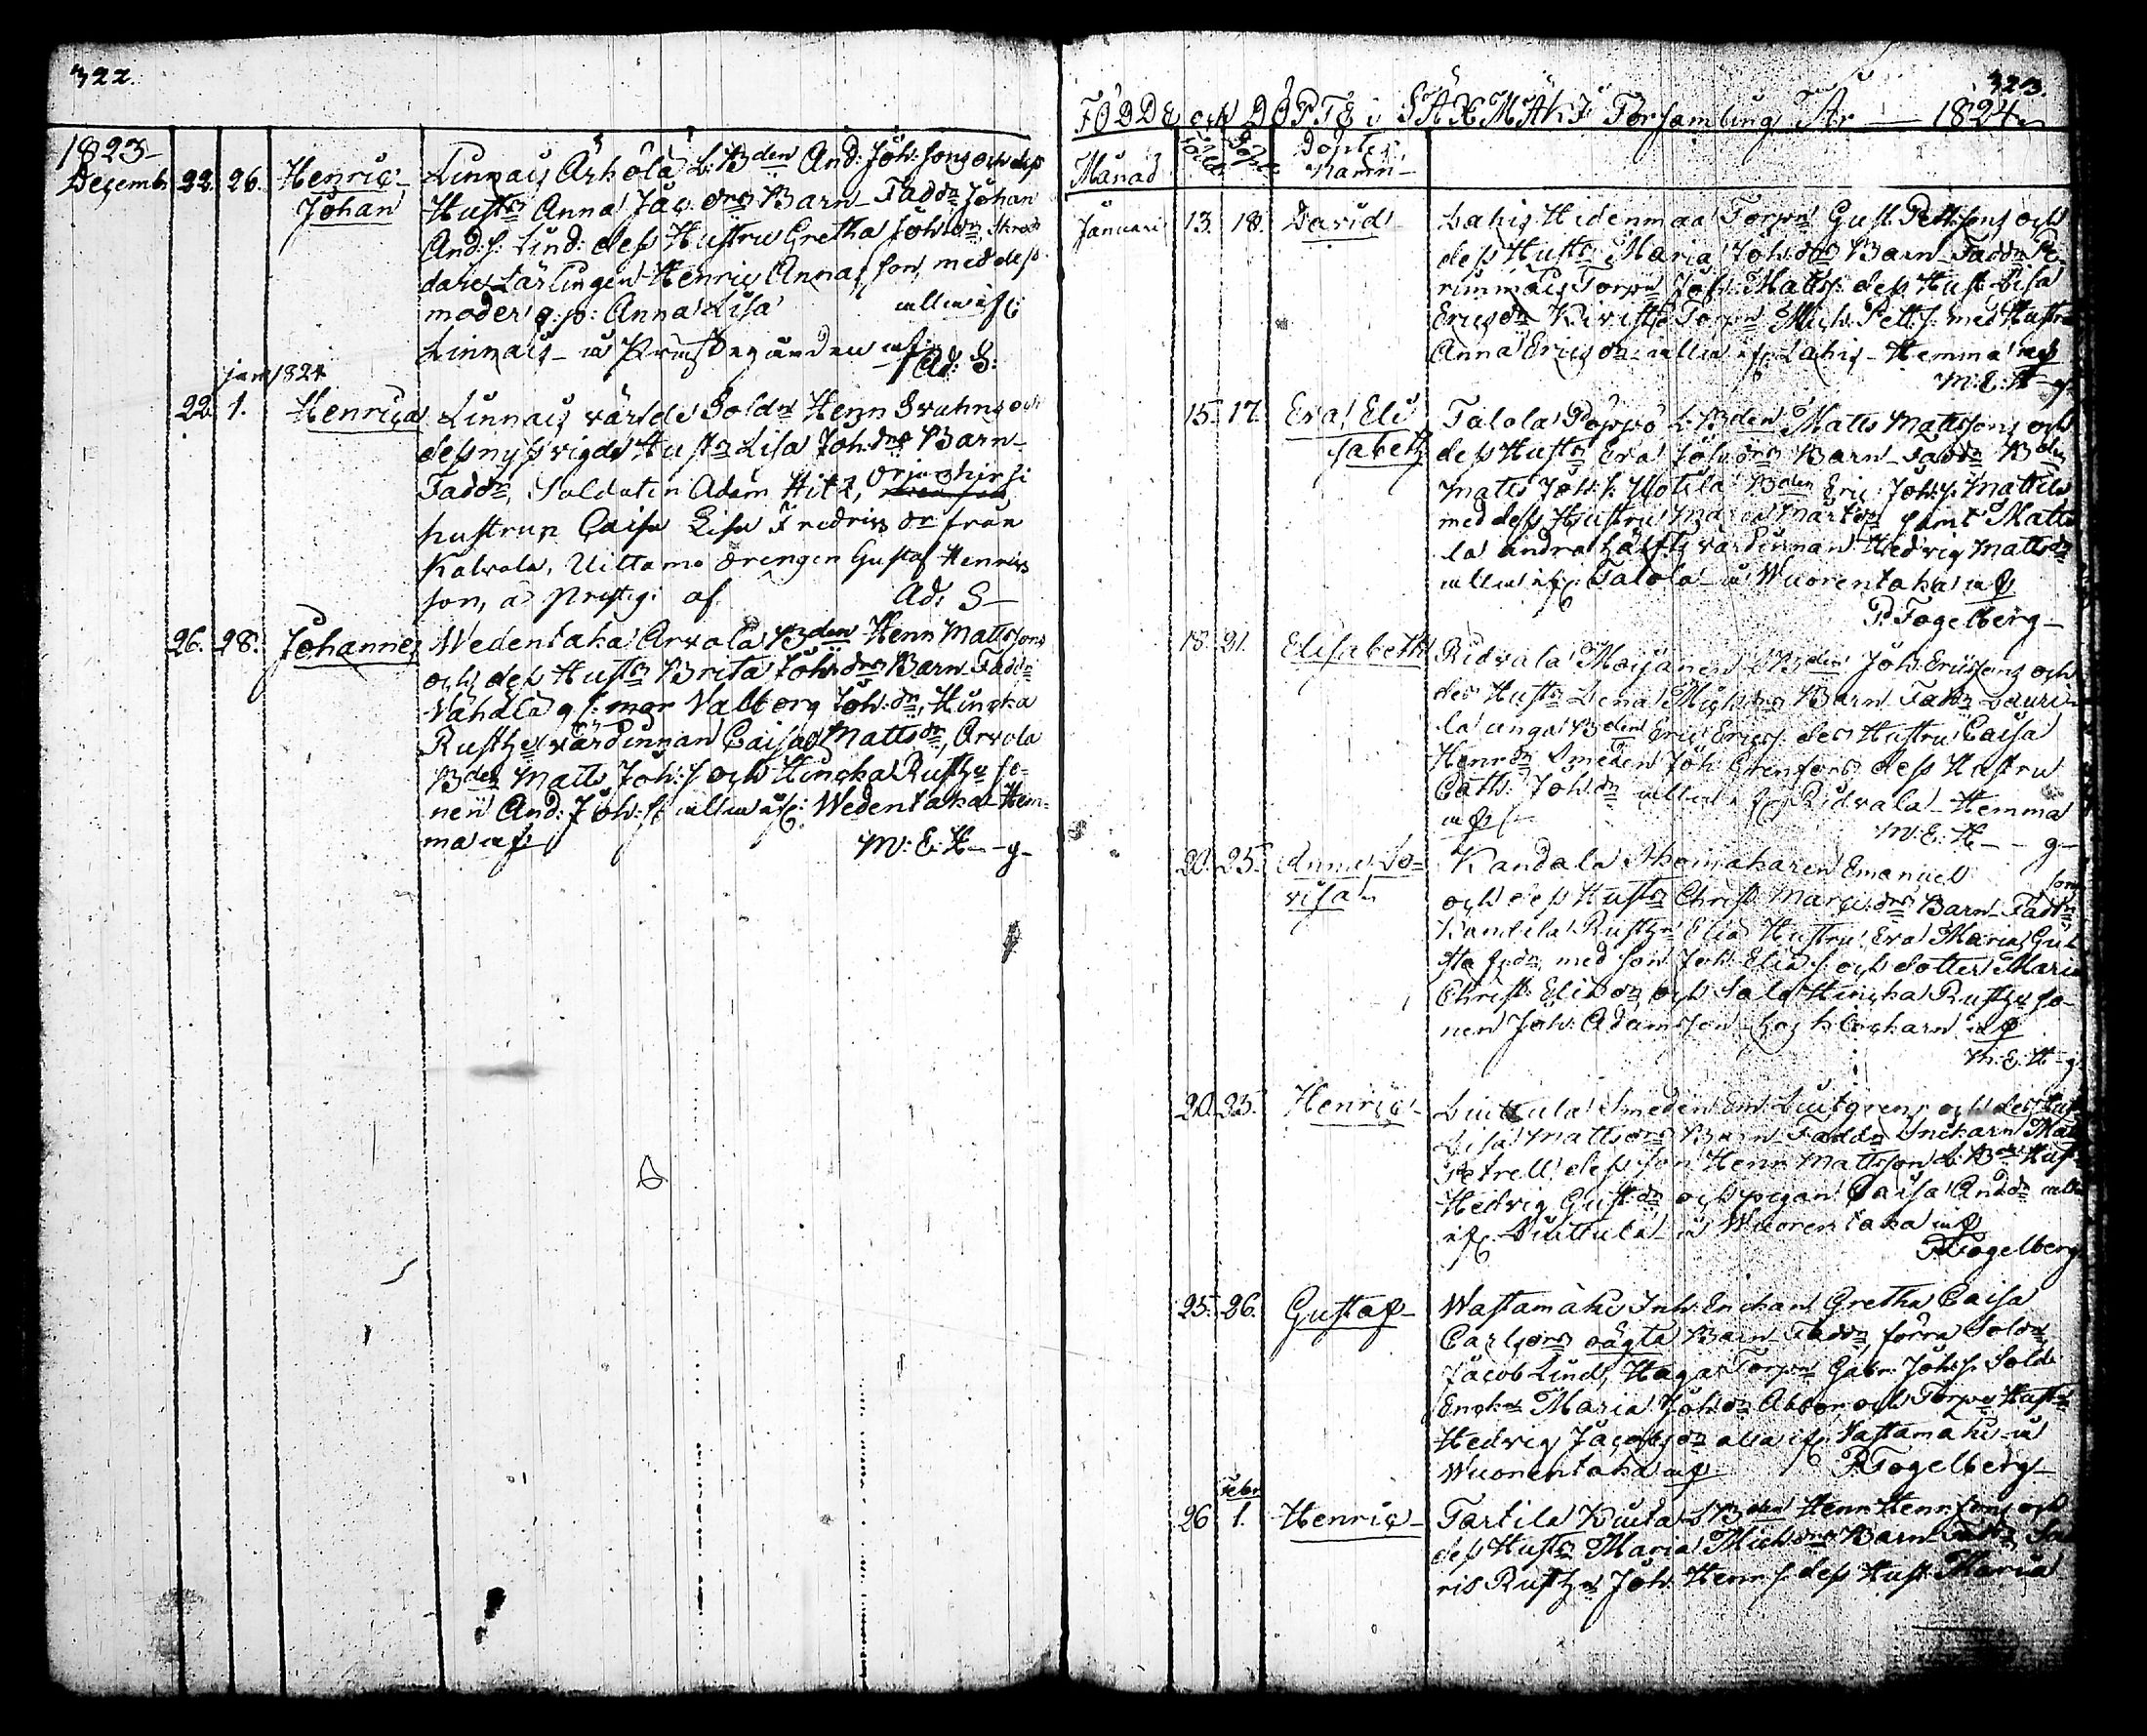 322.
1823
Decemb. 22. 26. Henric Johan
Linnais Arhola L: Bden And: Joh: sons och dess
Hustrs Anna Jac. drs Barn Faddr Johan
And: s. Lind: dess Hustru Gretha Joh: dr Skräd
dare Lärlingen Henric Annas son, med dess
moder g: p: Anna Lisa alla i f:
Linnais af
Ad: S:
jan 1824
22. 1. Henrica Linnais värfde Soldn Henn och
dess Hustr Lisa Joh: drs Barn
Faddr, Soldaten Adam Hitz, Orjanhirsi
hustrun Caisa Lisa Fredrics dr från
Kalvola, Uittamo drengen Gustaf Henrics
son, af. Ad: S
26. 28. Johannes Wedentaka Arvola Bden Henn Mattssons
och dess Hustrs Brita Joh: drs Barn Faddr
Vähdlä g: mor Valborg Joh: dr, Huncka
Rusth värdinnan Caisa Matts dr, Arvola
Bden Matts Joh: s och Huncka Rusth so-
nen And: Joh: s: alla i f: Wedentaka Hem-
ma af M: E: H - g
323.
FÖDDE och DÖPTE i SÄXMÄKI Församling År 1824
Månad Födde Döpte Döptes namn
Januari 13. 18. David Lahis Hidenmaa Torpn Gust. Pett: sons och
dess Hustrs Maria Joh: drs Barn Faddr Pe-
rinmäis Torpn Joh: Matts: dess Hust Lisa
Erics dr Torpn Mich: Pett: s: med Hustru
Anna Erics dr alla i f: Lahis Hemma af
M: E: H - g
15. 17. Eva Eli
sabeth Talola Pöppö L: Bden Matts Mattssons och
dess Hustrs Eva Joh: drs Barn Faddr Bden
Matts Joh: s: Uotila Bden Eric Joh: s: Mattila
med dess Hustru Maria Mårts dr samt Matti
la andra hälftz värdinnan Hedvig Matts dr
alla i f: Talola Wuorentaka af
P. Fogelberg
18. 21. Elisabeth Ridvala Moijanen Bden Joh: Ericssons och
des Hustrs Lena Mich: drs Barn Faddr Lauri-
la unga Bden Eric Erics: des Hustru Caisa
Henr dr Smeden Joh: Grenfors dess Hustru
Cath: Joh: dr alla i f: Ridvala Hemma
af
M: E: H - g
20. 25. Anna Lo-
visa Kandala Skomakaren Emanuel sons
och dess Hustrs Christ: Marc: drs Barn Faddr
Kandela Rusth Elias Hustru Eva Maria Gu
stafs dr, med son Joh: Elias s: och dotter Maria
Christ: Elis dr och Sald Huncka Rusth so-
nen Joh: Adamsson hos klockarn af
M: E: H - g
20. 25. Henric Liuttula Smeden Em: Liufgrens och des Hust
Lisa Matts drs Barn Faddr Snickarn Matts
Petrell dess son Henr Mattsson L: Bds Hust
Hedvig Gust: dr och pigan Caisa And: dr alla
i f: Liuttula Wuorentaka af
P. Fogelberg
25. 26. Gustaf Wastamäki Inh: Enckan Gretha Caisa
Carls drs oägta Barn Faddr förra Soldn
Jacob Lind, Haga Torpn Gabr: Joh: s: Sold:
Encka Maria Joh: dr Abbor och Torpns Hustr
Hedvig Jacobs dr alla i f: Vastamäki
Wuorentaka af P. Fogelberg
Febr
26 1. Henric Tartila Kuuta L: Bden Henn Henr: sons och
dess Hustrs Maria Mich: drs Barn Faddr
ris Rusth Joh: Henr: s: dess Hust Maria